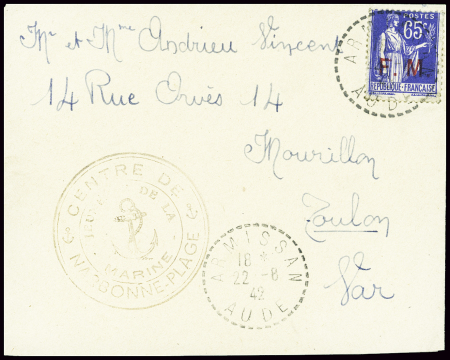 Mr et Mme Andrieu Vincent
14 Rue Orvès 14
Mourillon
Toulon
Var
POSTES
65c
F. M.
REPUBLIQUE FRANCAISE
ARM
AUDE
CENTRE DE
DE LA
MARINE
NARBONNE-PLAGE
ARMISSAN
18 *
22 -8
42
AUDE